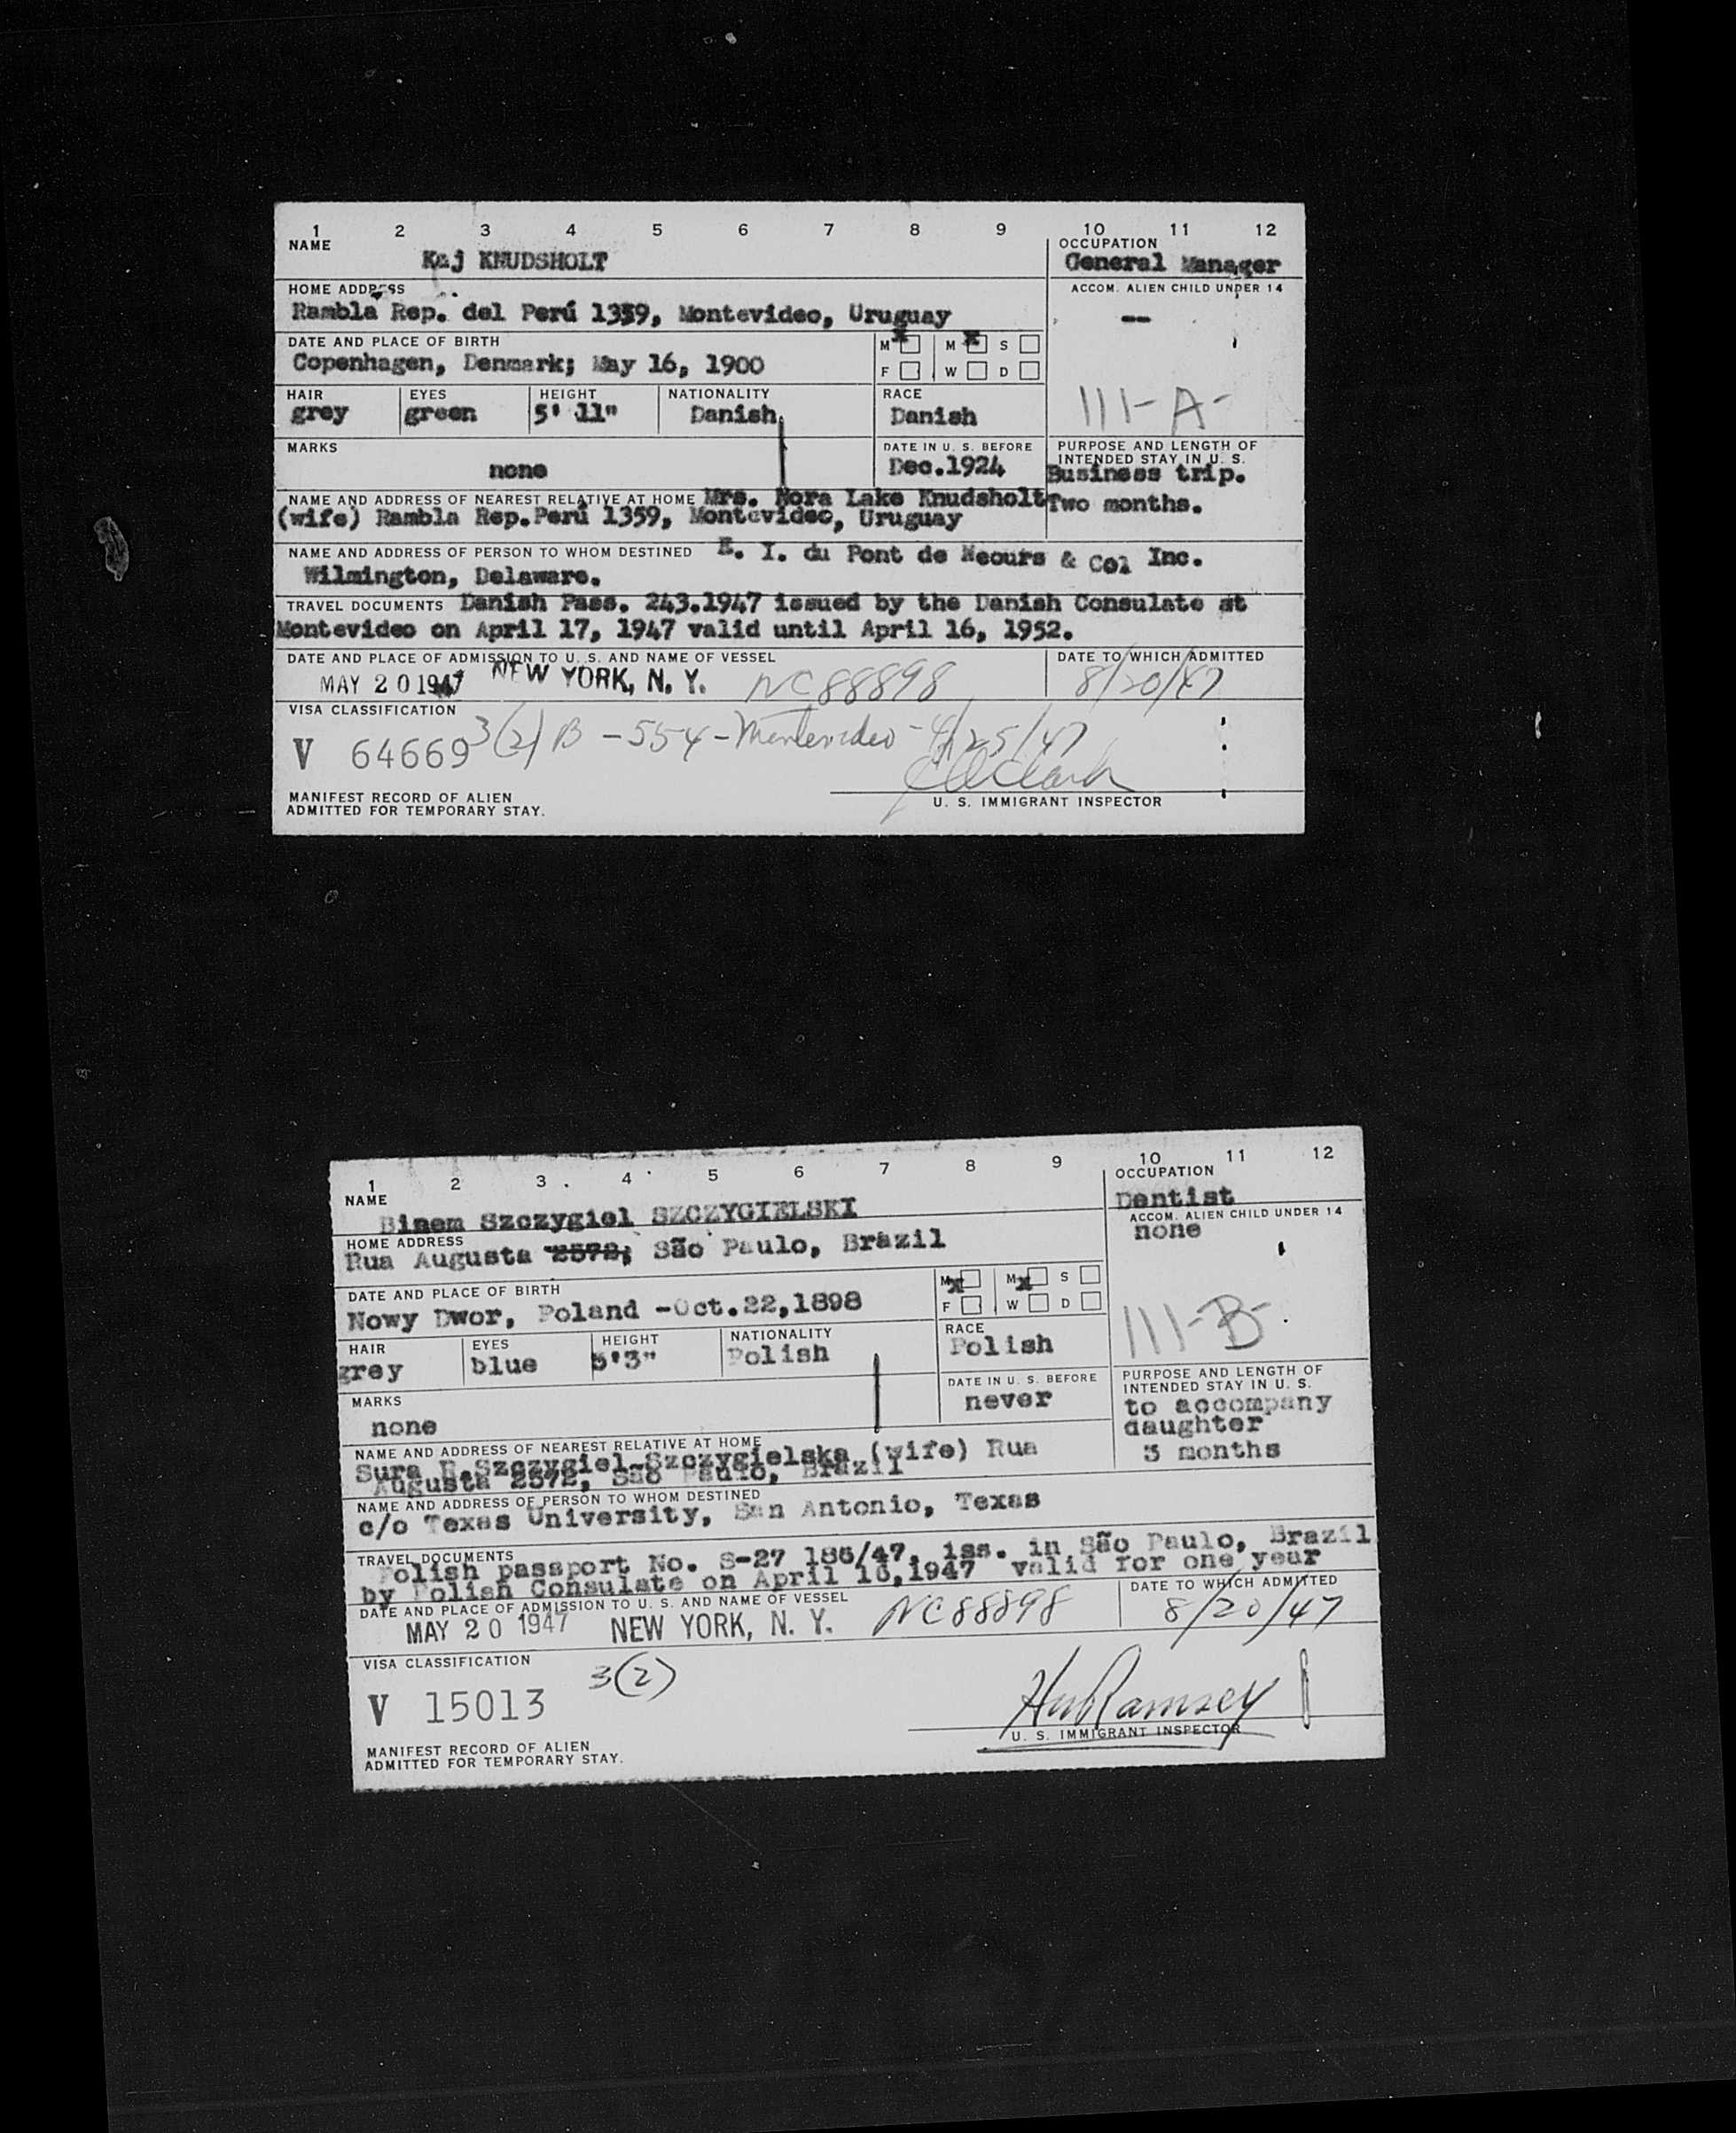 1 2 3 4 5 6 7 8 9 10 11 12
NAME
Kaj KNUDSHOLT
OCCUPATION
General Manager
HOME ADDRESS
Rambla Rep. del Perú 1359, Montevideo, Uruguay
ACCOM. ALIEN CHILD UNDER 14
--
DATE AND PLACE OF BIRTH
Copenhagen, Denmark; May 16, 1900
M x M x S
F W D
HAIR EYES HEIGHT NATIONALITY RACE
grey green 5' 11" Danish Danish
111-A-
MARKS
none
DATE IN U. S. BEFORE
Dec.1924
PURPOSE AND LENGTH OF
INTENDED STAY IN U. S.
Business trip.
Two months.
NAME AND ADDRESS OF NEAREST RELATIVE AT HOME Mrs. Nora Lake Knudsholt
(wife) Rambla Rep.Perú 1359, Montevideo, Uruguay
NAME AND ADDRESS OF PERSON TO WHOM DESTINED E. I. du Pont de Neours & Col Inc.
Wilmington, Delaware.
TRAVEL DOCUMENTS Danish Pass. 243.1947 issued by the Danish Consulate at
Montevideo on April 17, 1947 valid until April 16, 1952.
DATE AND PLACE OF ADMISSION TO U. S. AND NAME OF VESSEL
MAY 20 1947 NEW YORK, N. Y. NC88898
DATE TO WHICH ADMITTED
8/20/47
VISA CLASSIFICATION
V 64669 3(2) B-554-Montevideo-4/25/47
U. S. IMMIGRANT INSPECTOR
MANIFEST RECORD OF ALIEN
ADMITTED FOR TEMPORARY STAY.
1 2 3 4 5 6 7 8 9 10 11 12
NAME
Binem Szczygiel SZCZYGIELSKI
OCCUPATION
Dentist
HOME ADDRESS
Rua Augusta 2572; São Paulo, Brazil
ACCOM. ALIEN CHILD UNDER 14
none
DATE AND PLACE OF BIRTH
Nowy Dwor, Poland -Oct.22,1898
M x M x S
F W D
HAIR EYES HEIGHT NATIONALITY RACE
grey blue 5'3" Polish Polish
111-B-
MARKS
none
DATE IN U. S. BEFORE
never
PURPOSE AND LENGTH OF
INTENDED STAY IN U. S.
to accompany
daughter
3 months
NAME AND ADDRESS OF NEAREST RELATIVE AT HOME
Sura Szczygiel-Szczygielska (wife) Rua
Augusta 2572, São Paulo, Brazil
NAME AND ADDRESS OF PERSON TO WHOM DESTINED
c/o Texas University, San Antonio, Texas
TRAVEL DOCUMENTS
Polish passport No. S-27 186/47, iss. in São Paulo, Brazil
by Polish Consulate on April 16,1947 valid for one year
DATE AND PLACE OF ADMISSION TO U. S. AND NAME OF VESSEL
MAY 20 1947 NEW YORK, N. Y. NC88898
DATE TO WHICH ADMITTED
8/20/47
VISA CLASSIFICATION
V 15013 3(2)
Ramsey
U. S. IMMIGRANT INSPECTOR
MANIFEST RECORD OF ALIEN
ADMITTED FOR TEMPORARY STAY.